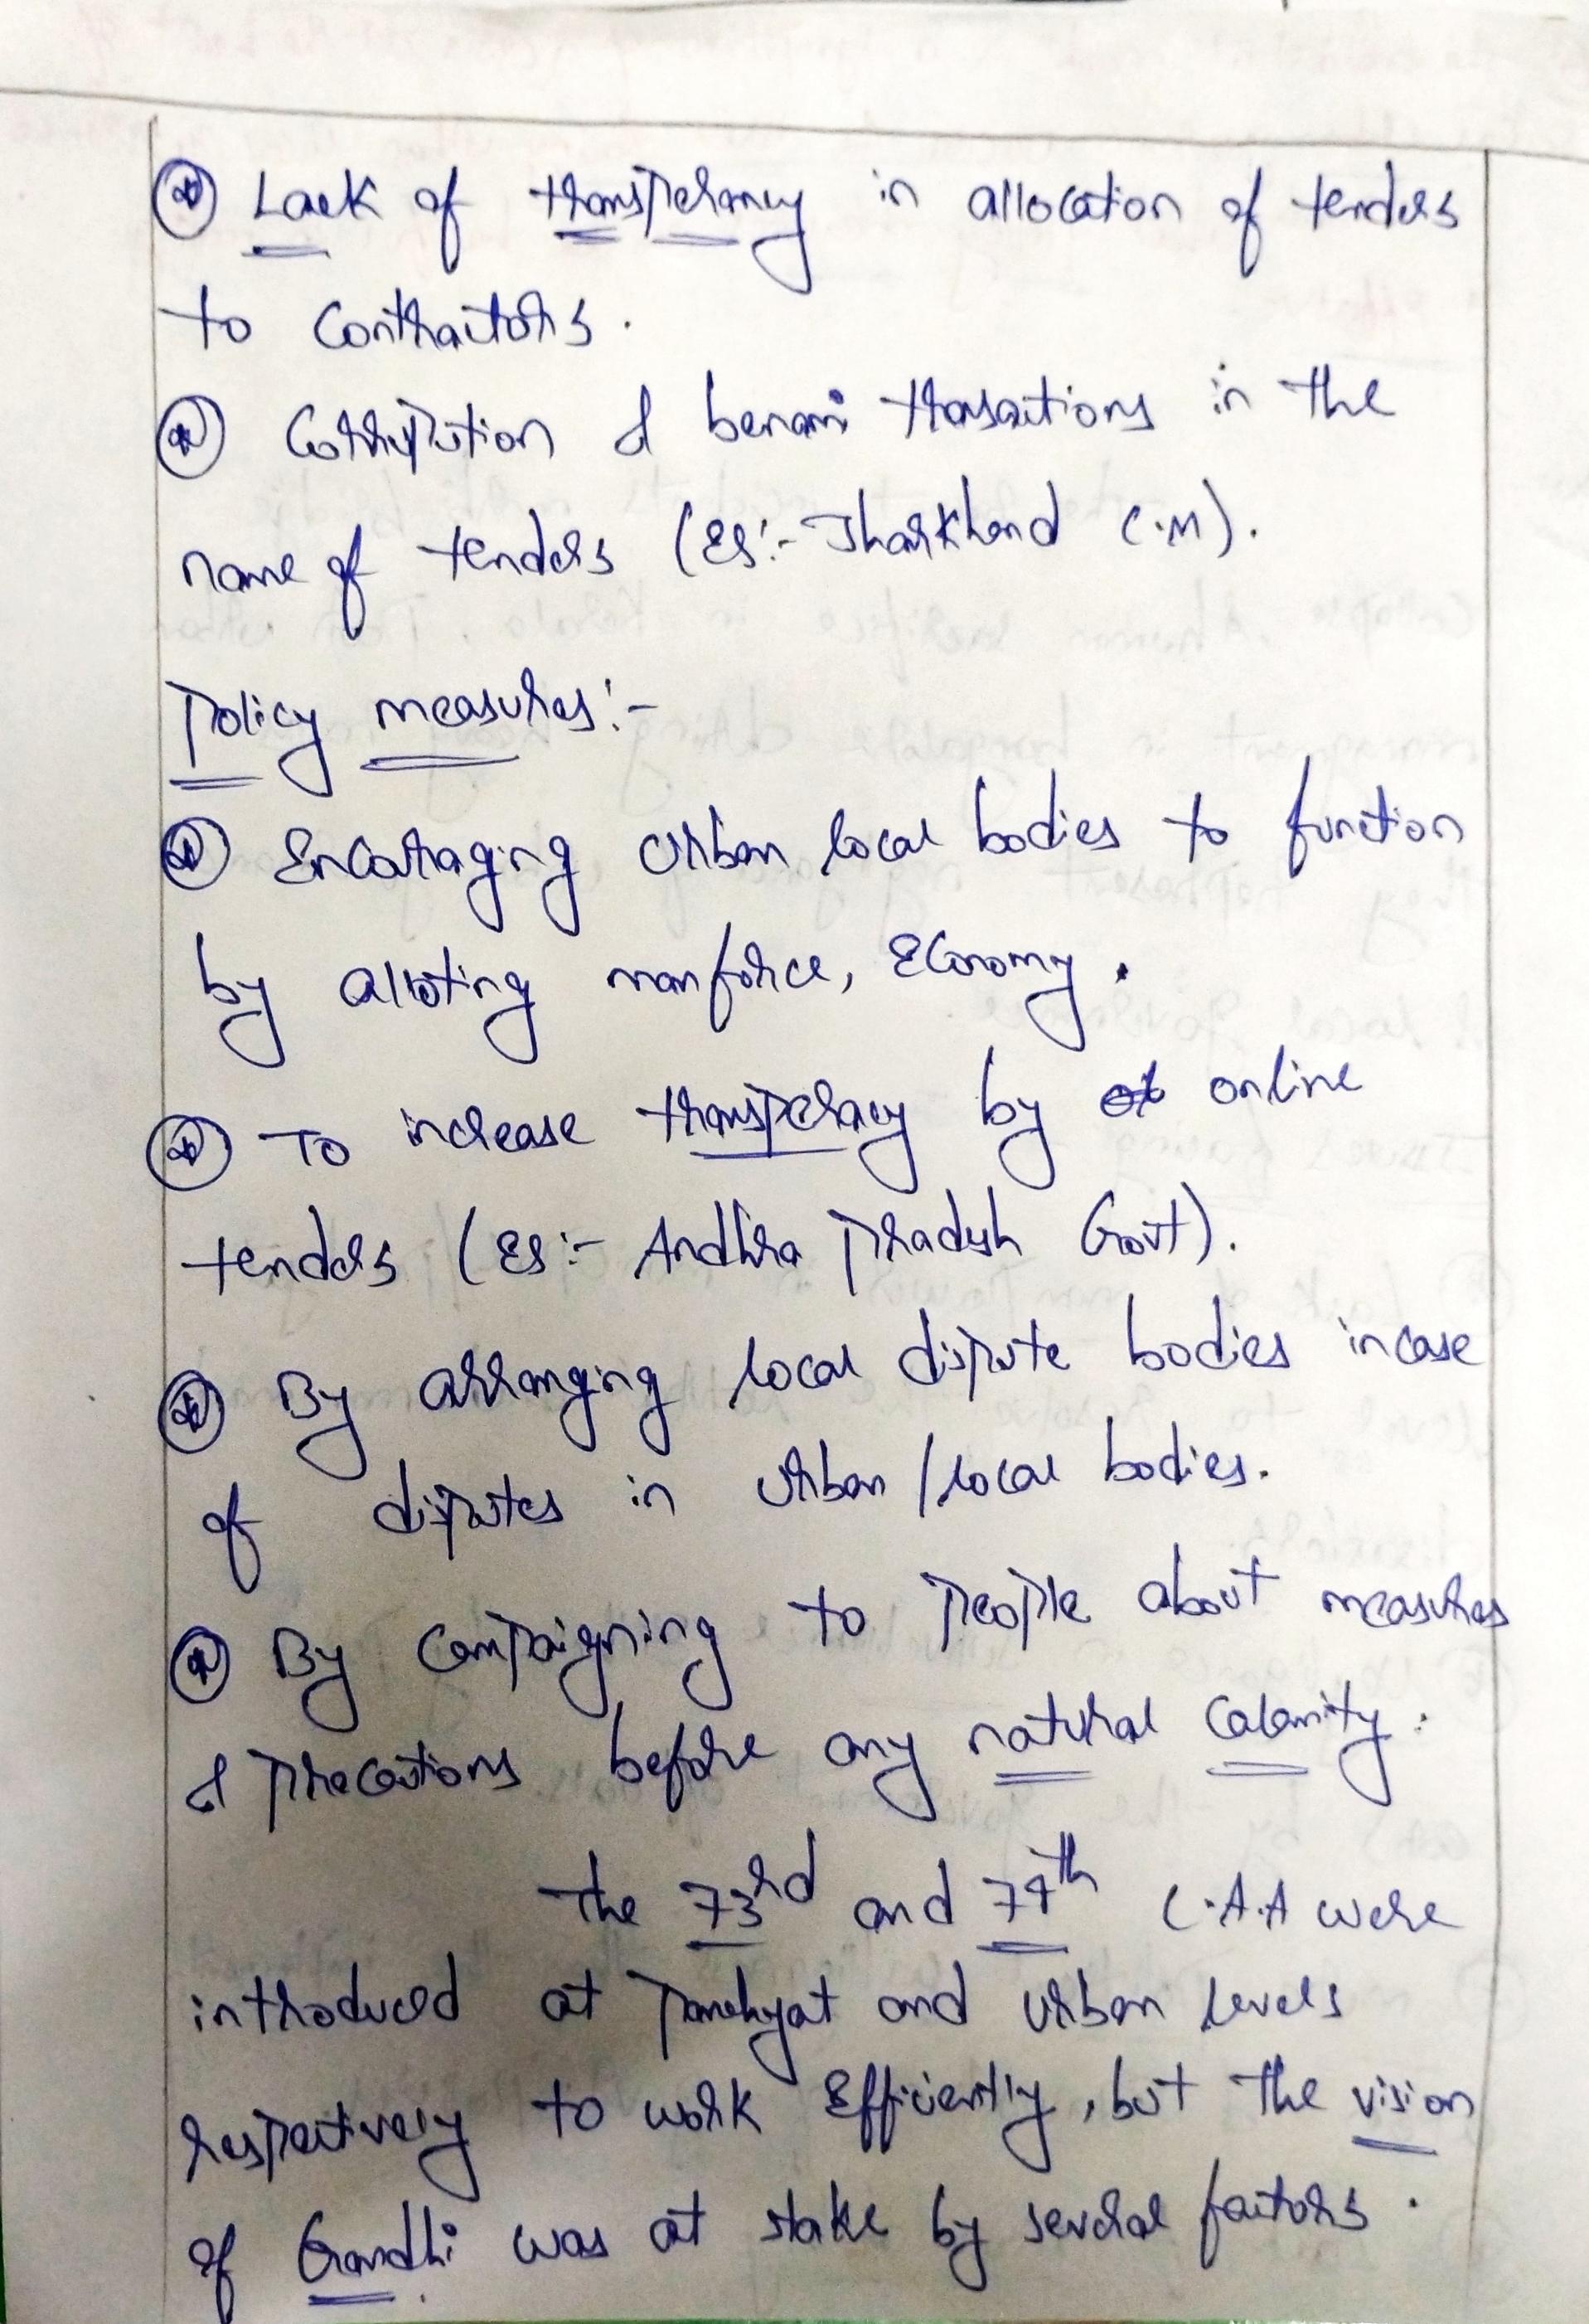 Lack of transperancy in allocation of tenders
to Contractors.
Corruption & benami transactions in the
name of tenders (Eg:- Jharkhand C.M).
Policy measures:-
Encouraging urban local bodies to function
by alloting manforce, Economy.
To increase transperacy by online
tenders (Eg:- Andhra Pradesh Govt).
By arranging local dispute bodies incase
of disputes in urban / local bodies.
By campaigning to people about measures
& precautions before any natural calamity.
The 73rd and 74th C.A.A were
introduced at Panchyat and urban levels
respectively to work Efficiently, but the vision
of Gandhi was at stake by several factors.